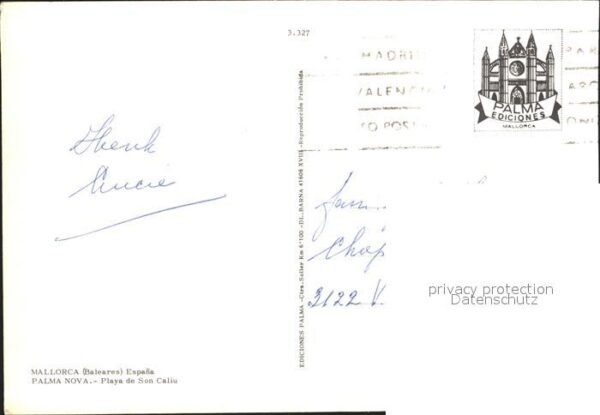 3.327
MADRI
VALENCI
O POS
PALMA
EDICIONES
MALLORCA
Henk
Lucie
EDICIONES PALMA -Ctra. Soller Km 6'100 -DL. BARNA 41606 XVIII -Reproducción Prohibida
Fam.
3122 V.
privacy protection
Datenschutz
MALLORCA (Baleares) España
PALMA NOVA.- Playa de Son Caliu